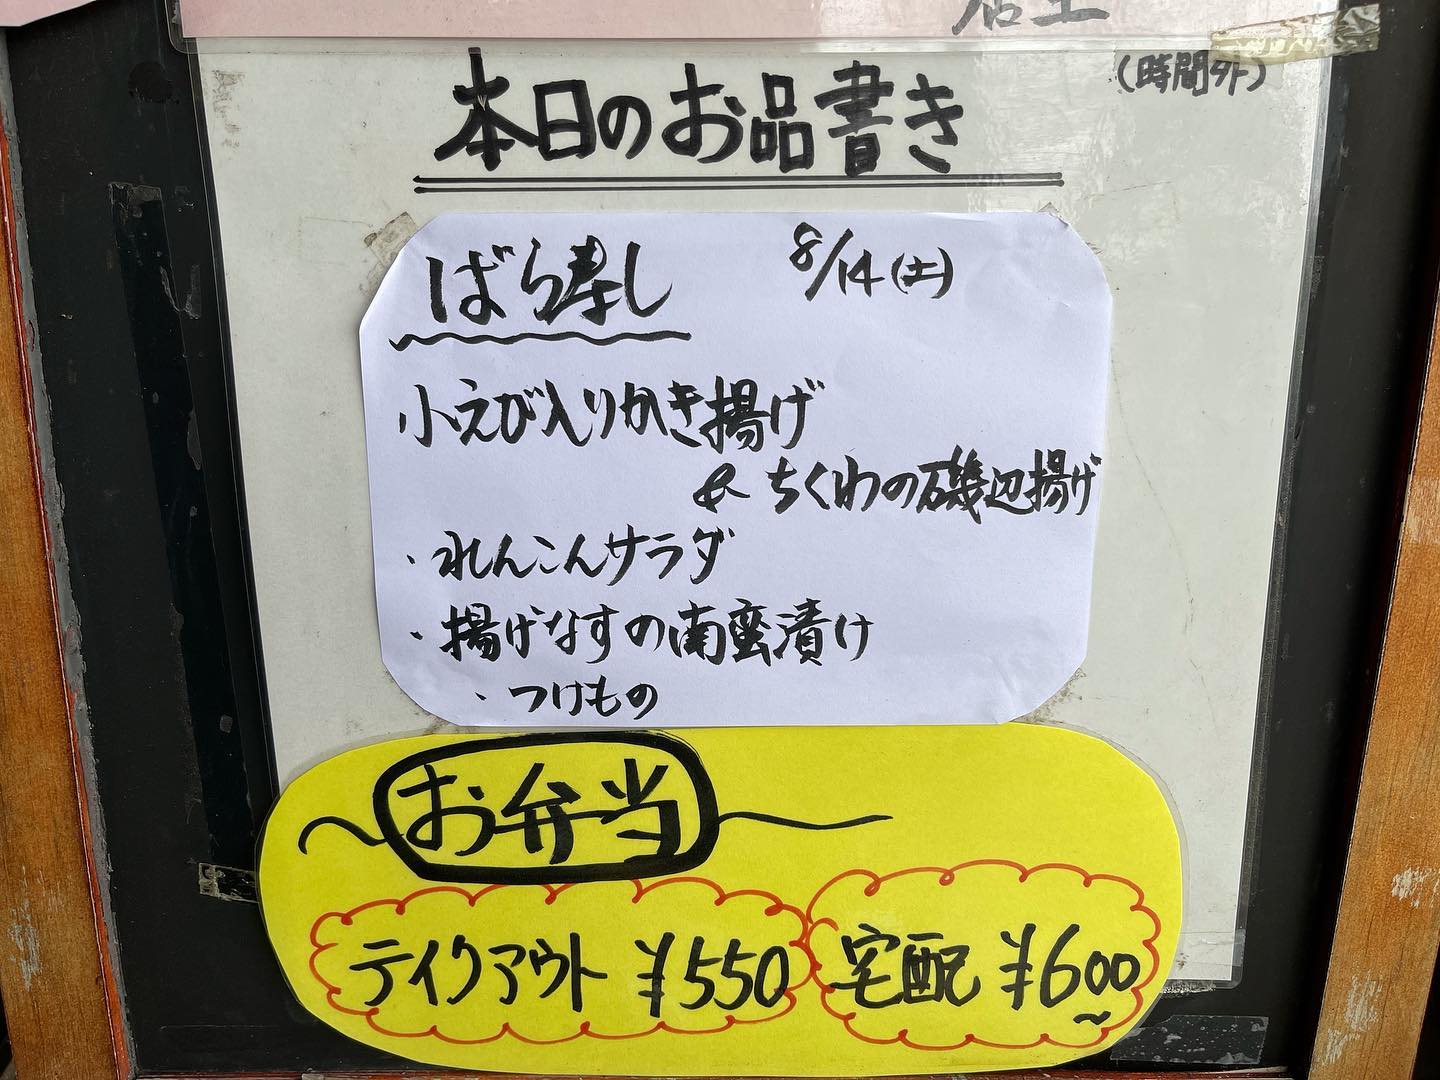 店主
(時間外)
本日のお品書き
ばら寿し 8/14(土)
小えび入りかき揚げ
& ちくわの磯辺揚げ
・れんこんサラダ
・揚げなすの南蛮漬け
・つけもの
お弁当
テイクアウト ¥550
宅配 ¥600~